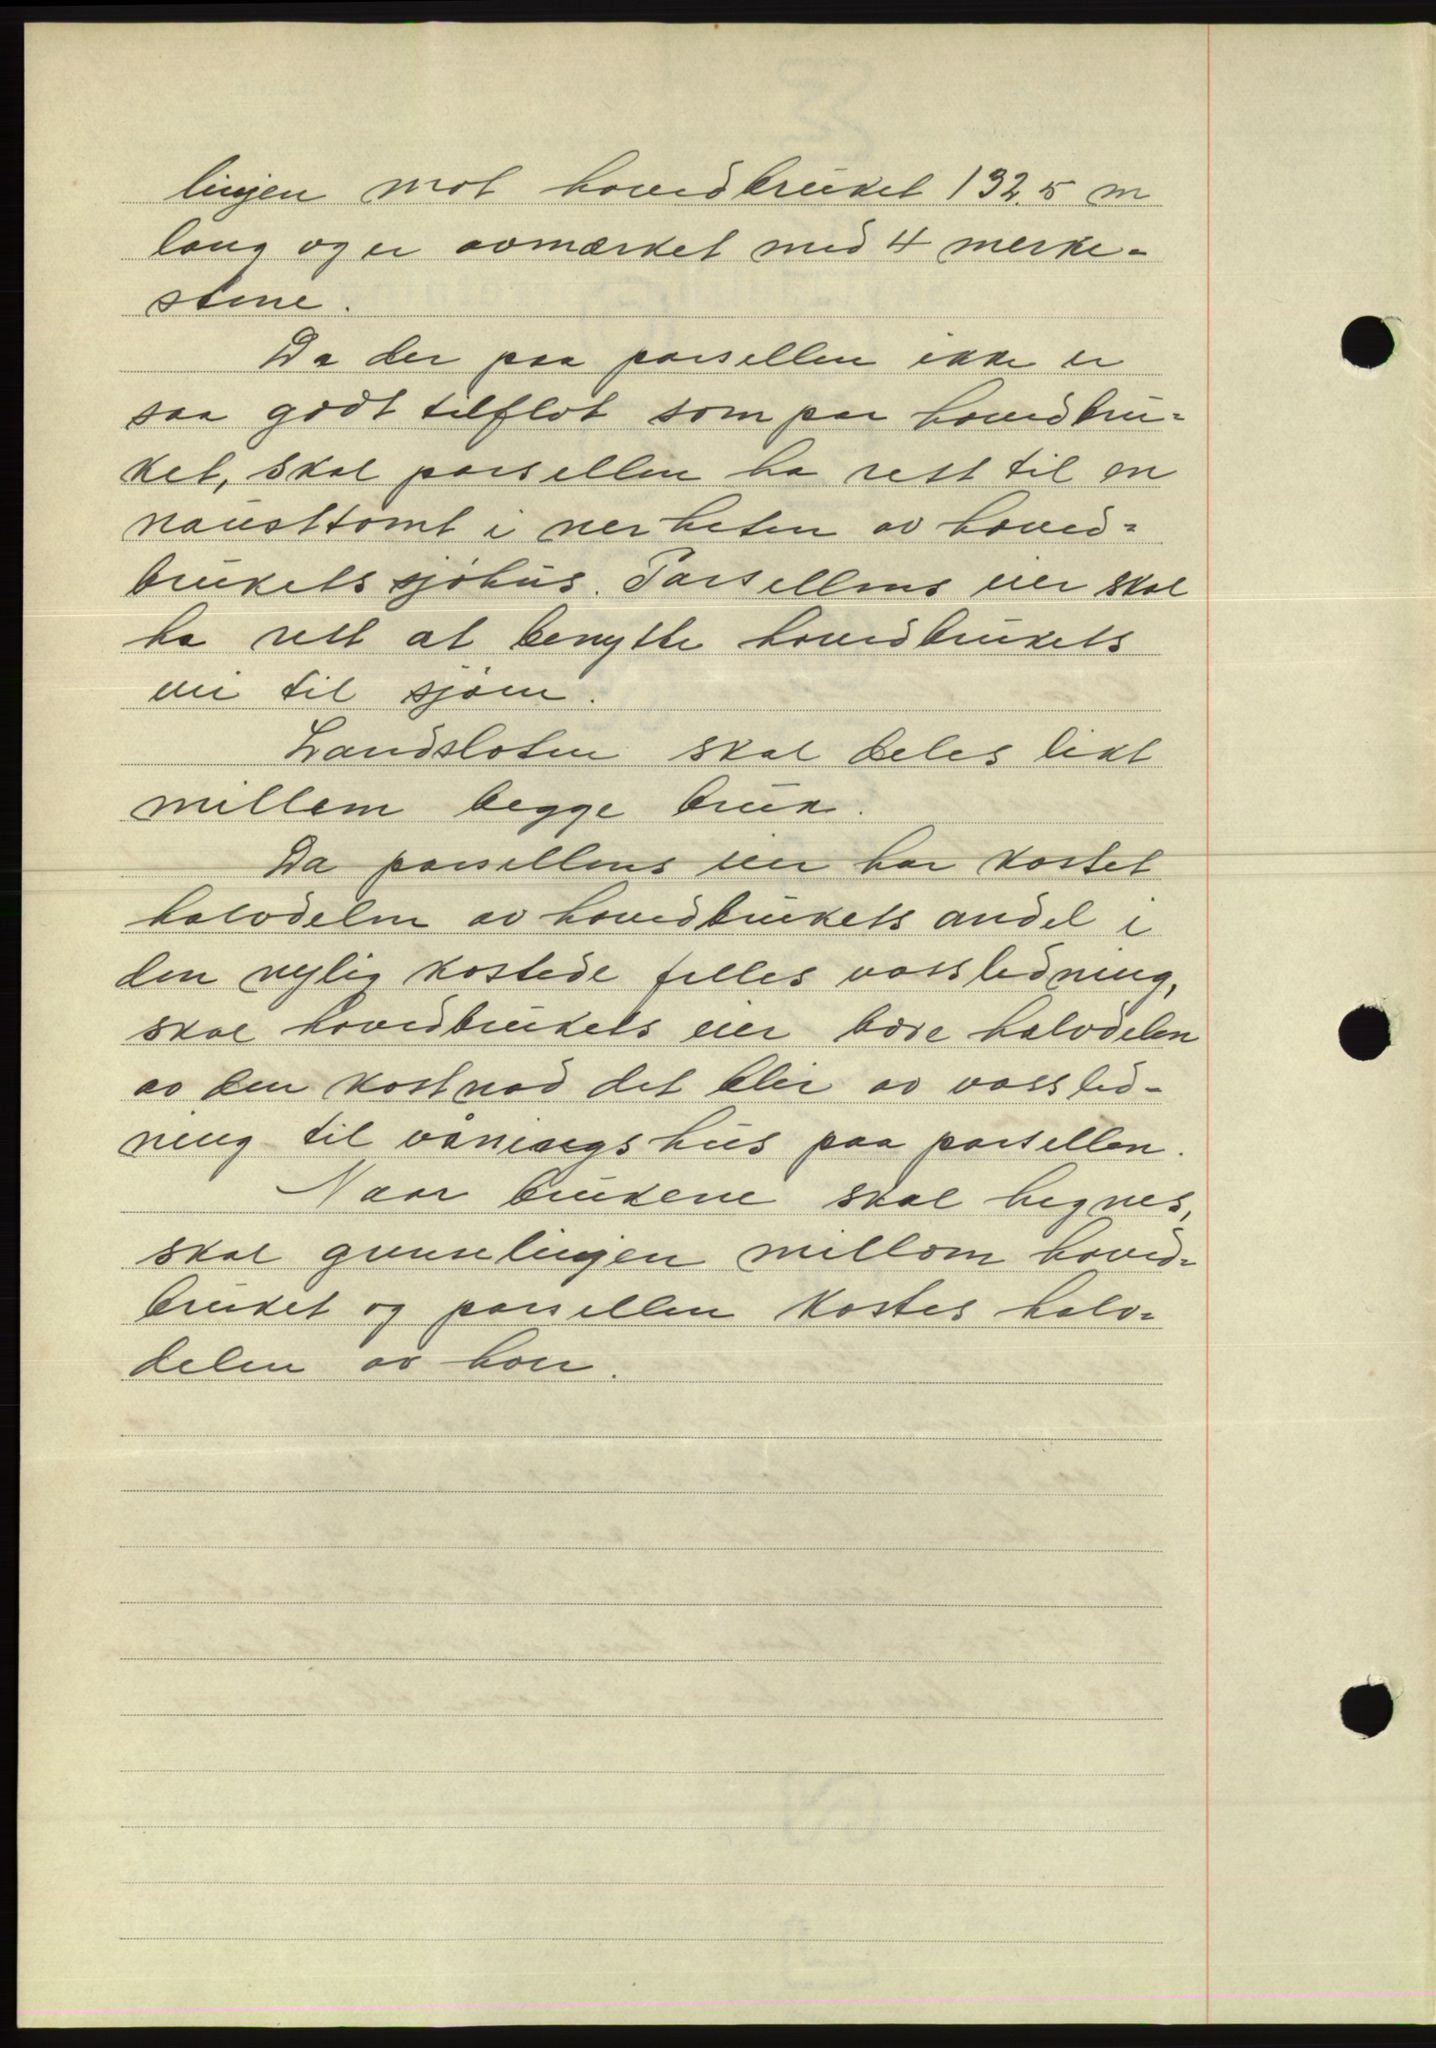 linjen mot hovedbruket 192.5 m
lang og er avmærket med 4 merke=
stene.
Da der paa parsellen ikke er
saa godt tilflot som paa hovedbru=
ket, skal parsellen ha rett til en
nausttomt i nerheten av hoved=
brukets sjøhus. Parsellens eier skal
ha rett at benytte hovedbrukets
vei til sjøen.
Landsloten skal deles likt
millem begge bruk.
Da parsellens eier har kostet
halvdelen av hovedbrukets andel i
den nylig kostede felles vassledning,
skal hovedbrukets eier bære halvdelen
av den kostnad det blir av vassled=
ning til våningshus paa parsellen.
Naar brukene skal hegnes,
skal grenselinjen millom hoved=
bruket og parsellen kostes halv=
delen av hver.